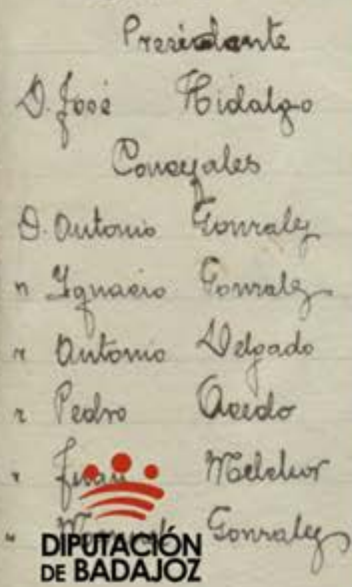 Presidante
D. José Hidalgo
Concejales
D. Antonio Gonzalez
" Ignacio Gonzalez
" Antonio Delgado
" Pedro Acedo
" Juan Melchor
" Gonzalez
DIPUTACIÓN
DE BADAJOZ